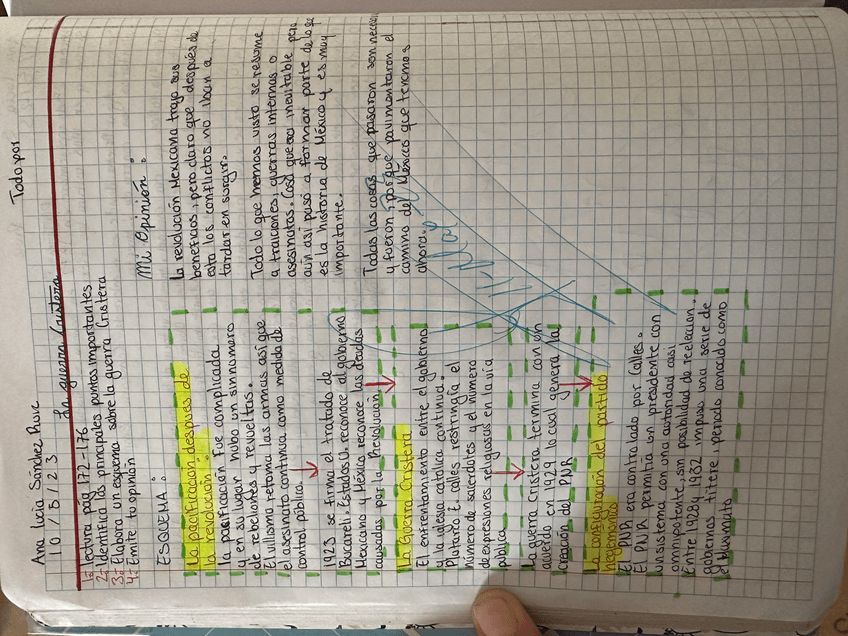 Todo por
Ana Lucia Sánchez
10 / 5 / 23
La guerra Cristera
1: lectura pág 172-176
2: Identifica los principales puntos importantes
3: Elabora un esquema sobre la guerra Cristera
4: Emite tu opinión
ESQUEMA:
La pacificación después de
la revolución:
la pacificación fue complicada
y en su lugar hubo un sin numero
de rebeliones y revueltas.
El villismo retoma las armas así que
el asesinato continua como medida de
control público.
1923 se firma el tratado de
Bucareli. Estados U. reconoce al gobierno
Mexicano y México reconoce las deudas
causadas por la Revolución
La Guerra Cristera
El enfrentamiento entre el gobierno
y la iglesia católica continua.
Plutarco E. calles restringía el
número de sacerdotes y el número
de expresiones religiosas en la vía
pública
La guerra Cristera termina con un
acuerdo en 1929 lo cual genera la
creación de PNR
La configuración del partido
hegemonico
El PNR era controlado por Calles.
El PNR permitía un presidente con
un sistema con una autoridad casi
omnipotente, sin posibilidad de reelección.
Entre 1928 y 1932 impuso una serie de
gobiernos títere, periodo conocido como
el Maximato
Mi Opinión:
la revolución Mexicana trajo sus
beneficios, pero claro que después de
esta los conflictos no iban a
tardar en surgir.
Todo lo que hemos visto se resume
a traiciones, guerras internas o
asesinatos. Cosa que era inevitable pero
aún así pasó a formar parte de lo que
es la historia de México y es muy
importante.
Todas las cosas que pasaron son
y fueron, porque pavimentaron el
camino del México que tenemos
ahora.